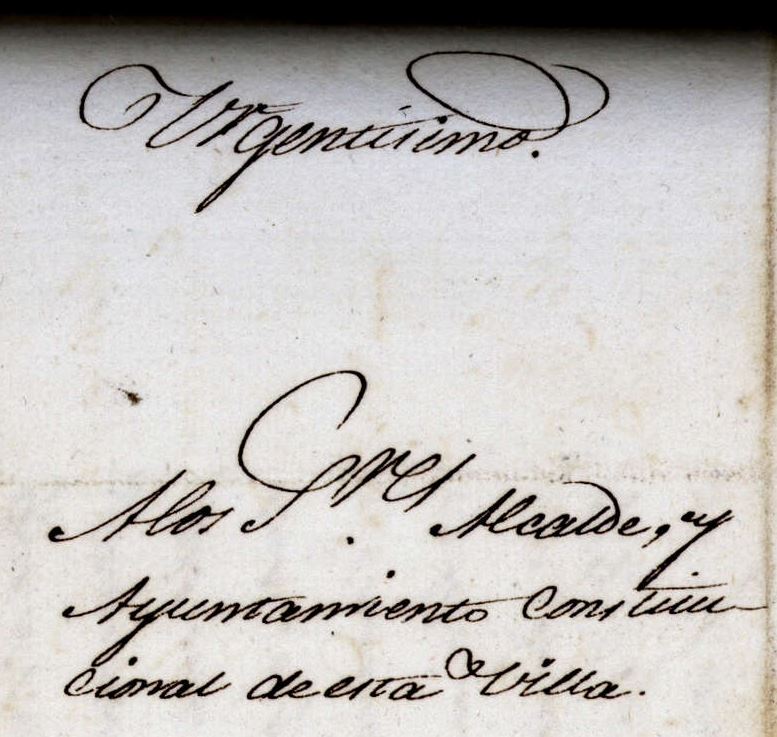 Urgentísimo.
Alos S.res Alcalde, y
Ayuntamiento Constitu-
cional de esta Villa.